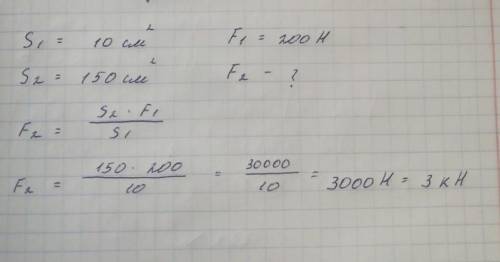 S₁ = 10 см² F₁ = 200 Н
S₂ = 150 см² F₂ - ?
F₂ = S₂ · F₁ / S₁
F₂ = 150 · 200 / 10 = 30000 / 10 = 3000 Н = 3 кН